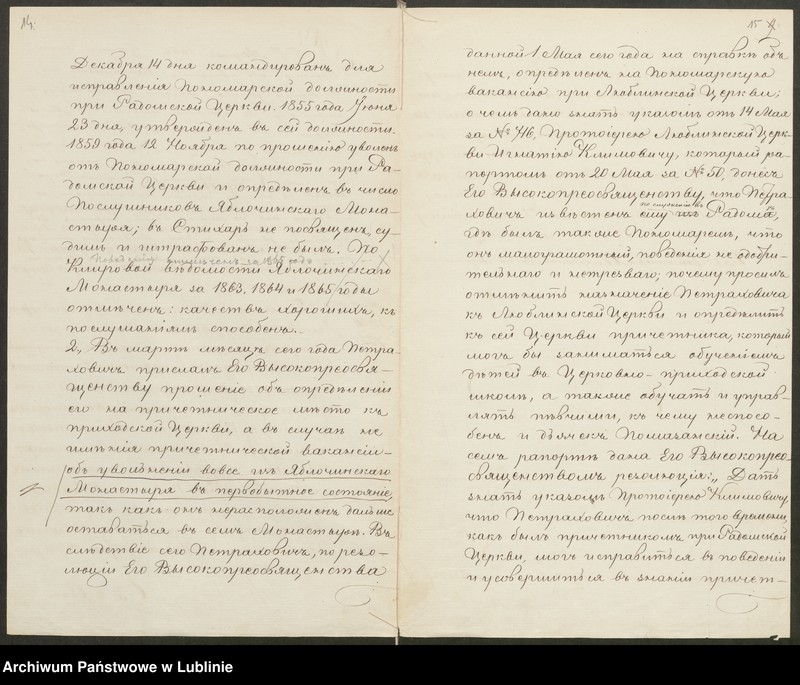 14.
Декабря 14 дня командированъ для
исправленія Пономарской должности
при Радомской Церкви. 1855 года Іюня
23 дня, утвержденъ въ сей должности.
1859 года 12 Ноября по прошенію уволенъ
отъ Пономарской должности при Ра-
домской Церкви и опредѣленъ въ число
Послушниковъ Яблочинскаго Мона-
стыря; въ Стихарь не посвященъ, су-
димъ и штрафованъ не былъ. По
за 1865 годъ
Клировой вѣдомости Яблочинскаго
Монастыря за 1863, 1864 и 1865 годы
отмѣченъ: качествъ хорошихъ, къ
послушаніямъ способенъ.
2., Въ мартѣ мѣсяцѣ сего года Петра-
ховичъ прислалъ Его Высокопреосвя-
щенству прошеніе объ опредѣленіи
его на причетническое мѣсто къ
приходской Церкви, а въ случаѣ не
имѣнія причетнической вакансіи-
объ увольненіи вовсе изъ Яблочинскаго
Монастыря въ первобытное состояніе,
такъ какъ онъ нерасположенъ дальше
оставаться въ семъ Монастырѣ. Въ
слѣдствіе сего Петраховичъ, по резо-
люціи Его Высокопреосвященства
15
данной 1 Мая сего года на справкѣ объ
немъ, опредѣленъ на Пономарскую
вакансію при Люблинской Церкви;
о чемъ дано знать указомъ отъ 14 Мая
за № 746, Протоіерею Люблинской Церк-
ви Игнатію Климовичу, который ра-
портомъ отъ 20 Мая за № 50, донесъ
Его Высокопреосвященству, что Петра-
по служенію въ
ховичъ извѣстенъ ему изъ Радома,
гдѣ былъ также Пономаремъ, что
онъ малограмотный, поведенія не одобри-
тельнаго и нетрезваго; почему просилъ
отмѣнить назначеніе Петраховича
къ Люблинской Церкви и опредѣлить
къ сей Церкви причетника, который
могъ бы заниматься обученіемъ
дѣтей въ Церковно-приходской
школѣ, а также обучать и управ-
лять пѣвчими, къ чему неспосо-
бенъ и дьячекъ Помазанскій. На
семъ рапортѣ дана Его Высокопрео-
священствомъ резолюція: „Дать
знать указомъ Протоіерею Климовичу,
что Петраховичъ послѣ того времени,
какъ былъ причетникомъ при Радомской
Церкви, могъ исправиться въ поведеніи
и усовершиться въ знаніи причет-
Archiwum Państwowe w Lublinie